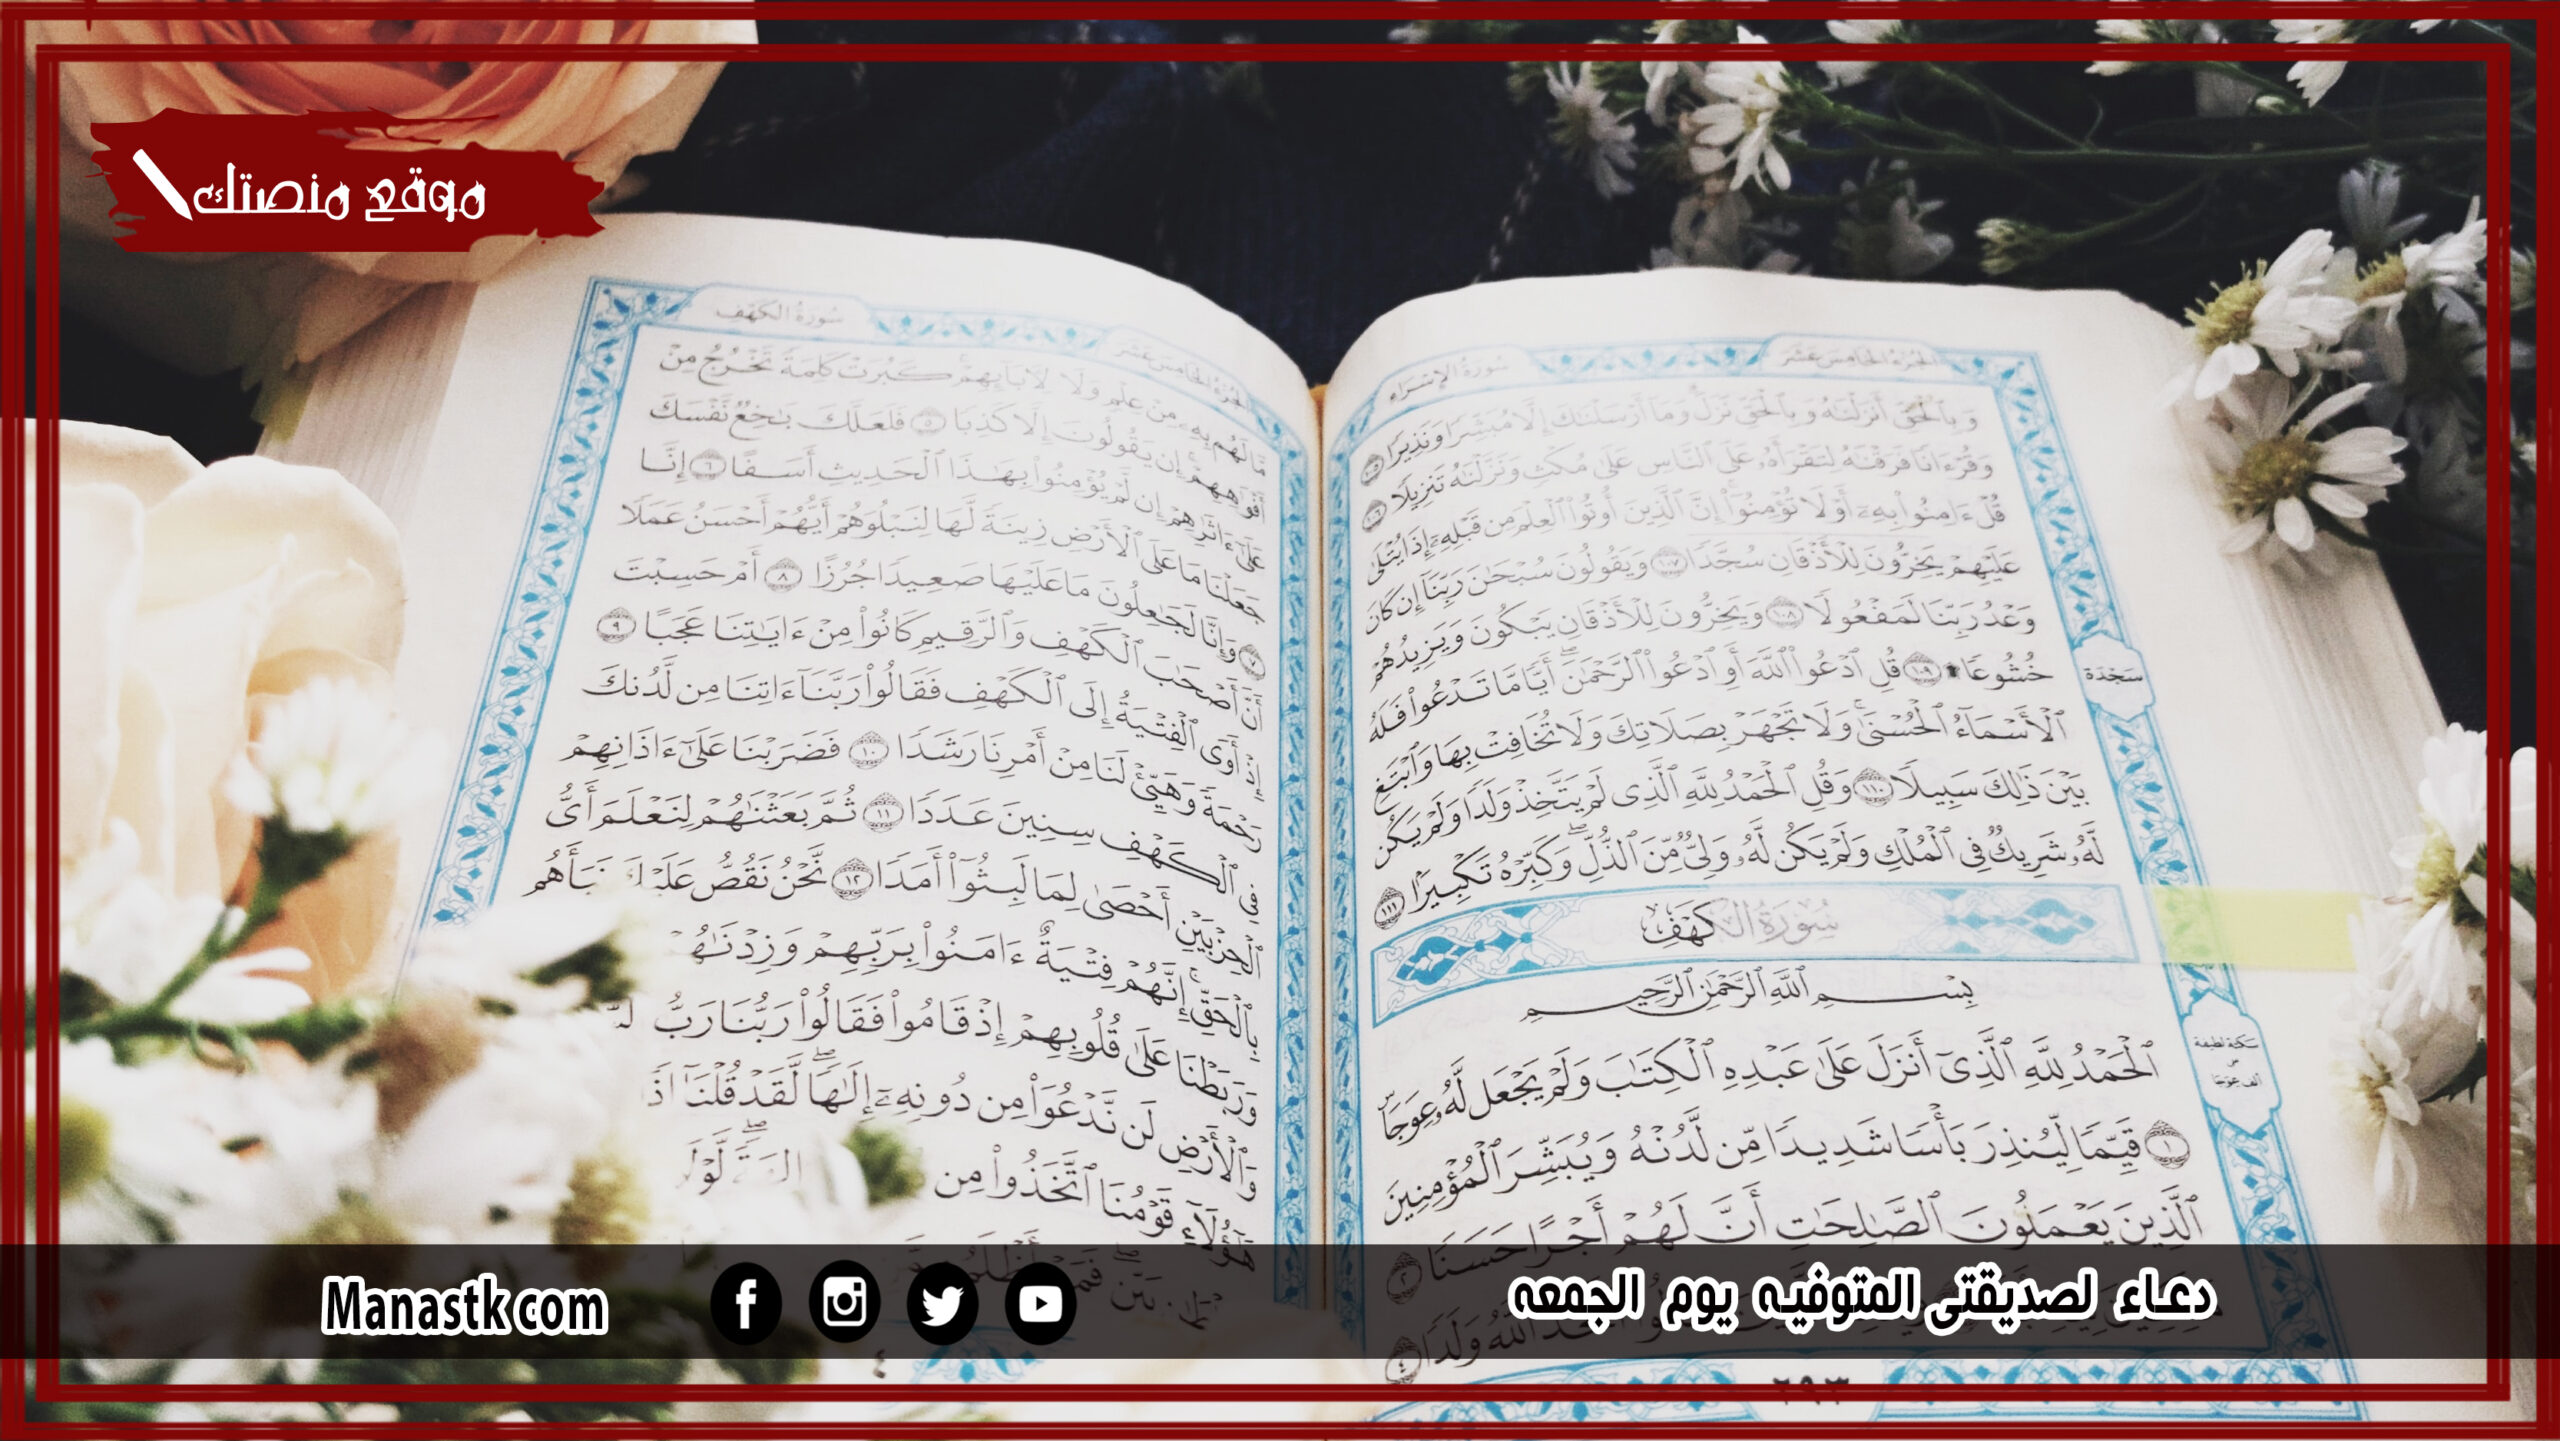 موقع منصتك
سُورَةُ الإِسْرَاءِ
الجُزْءُ الخَامِسَ عَشَرَ
وَبِٱلْحَقِّ أَنزَلْنَٰهُ وَبِٱلْحَقِّ نَزَلَ وَمَآ أَرْسَلْنَٰكَ إِلَّا مُبَشِّرًا وَنَذِيرًا ١٠٥
وَقُرْءَانًا فَرَقْنَٰهُ لِتَقْرَأَهُۥ عَلَى ٱلنَّاسِ عَلَىٰ مُكْثٍ وَنَزَّلْنَٰهُ تَنزِيلًا ١٠٦
قُلْ ءَامِنُوا۟ بِهِۦٓ أَوْ لَا تُؤْمِنُوٓا۟ إِنَّ ٱلَّذِينَ أُوتُوا۟ ٱلْعِلْمَ مِن قَبْلِهِۦٓ إِذَا يُتْلَىٰ
عَلَيْهِمْ يَخِرُّونَ لِلْأَذْقَانِ سُجَّدًا ١٠٧ وَيَقُولُونَ سُبْحَٰنَ رَبِّنَآ إِن كَانَ
وَعْدُ رَبِّنَا لَمَفْعُولًا ١٠٨ وَيَخِرُّونَ لِلْأَذْقَانِ يَبْكُونَ وَيَزِيدُهُمْ
خُشُوعًا ١٠٩ قُلِ ٱدْعُوا۟ ٱللَّهَ أَوِ ٱدْعُوا۟ ٱلرَّحْمَٰنَ أَيًّا مَّا تَدْعُوا۟ فَلَهُ
سَجْدَة
ٱلْأَسْمَآءُ ٱلْحُسْنَىٰ وَلَا تَجْهَرْ بِصَلَاتِكَ وَلَا تُخَافِتْ بِهَا وَٱبْتَغِ
بَيْنَ ذَٰلِكَ سَبِيلًا ١١٠ وَقُلِ ٱلْحَمْدُ لِلَّهِ ٱلَّذِى لَمْ يَتَّخِذْ وَلَدًا وَلَمْ يَكُن
لَّهُۥ شَرِيكٌ فِى ٱلْمُلْكِ وَلَمْ يَكُن لَّهُۥ وَلِىٌّ مِّنَ ٱلذُّلِّ وَكَبِّرْهُ تَكْبِيرًۢا ١١١
سُورَةُ الكَهْفِ
بِسْمِ ٱللَّهِ ٱلرَّحْمَٰنِ ٱلرَّحِيمِ
ٱلْحَمْدُ لِلَّهِ ٱلَّذِىٓ أَنزَلَ عَلَىٰ عَبْدِهِ ٱلْكِتَٰبَ وَلَمْ يَجْعَل لَّهُۥ عِوَجَاۜ
سكتة لطيفة
على
ألف عِوَجَا
١ قَيِّمًا لِّيُنذِرَ بَأْسًا شَدِيدًا مِّن لَّدُنْهُ وَيُبَشِّرَ ٱلْمُؤْمِنِينَ
ٱلَّذِينَ يَعْمَلُونَ ٱلصَّٰلِحَٰتِ أَنَّ لَهُمْ أَجْرًا حَسَنًا ٢
ٱللَّهُ وَلَدًا ٤
٢٩٣
الجُزْءُ الخَامِسَ عَشَرَ
سُورَةُ الكَهْفِ
مَّا لَهُم بِهِۦ مِنْ عِلْمٍ وَلَا لِءَابَآئِهِمْ كَبُرَتْ كَلِمَةً تَخْرُجُ مِنْ
أَفْوَٰهِهِمْ إِن يَقُولُونَ إِلَّا كَذِبًا ٥ فَلَعَلَّكَ بَٰخِعٌ نَّفْسَكَ
عَلَىٰٓ ءَاثَٰرِهِمْ إِن لَّمْ يُؤْمِنُوا۟ بِهَٰذَا ٱلْحَدِيثِ أَسَفًا ٦ إِنَّا
جَعَلْنَا مَا عَلَى ٱلْأَرْضِ زِينَةً لَّهَا لِنَبْلُوَهُمْ أَيُّهُمْ أَحْسَنُ عَمَلًا
٧ وَإِنَّا لَجَٰعِلُونَ مَا عَلَيْهَا صَعِيدًا جُرُزًا ٨ أَمْ حَسِبْتَ
أَنَّ أَصْحَٰبَ ٱلْكَهْفِ وَٱلرَّقِيمِ كَانُوا۟ مِنْ ءَايَٰتِنَا عَجَبًا ٩
إِذْ أَوَى ٱلْفِتْيَةُ إِلَى ٱلْكَهْفِ فَقَالُوا۟ رَبَّنَآ ءَاتِنَا مِن لَّدُنكَ
رَحْمَةً وَهَيِّئْ لَنَا مِنْ أَمْرِنَا رَشَدًا ١٠ فَضَرَبْنَا عَلَىٰٓ ءَاذَانِهِمْ
فِى ٱلْكَهْفِ سِنِينَ عَدَدًا ١١ ثُمَّ بَعَثْنَٰهُمْ لِنَعْلَمَ أَىُّ
ٱلْحِزْبَيْنِ أَحْصَىٰ لِمَا لَبِثُوٓا۟ أَمَدًا ١٢ نَّحْنُ نَقُصُّ عَلَيْكَ نَبَأَهُم
بِٱلْحَقِّ إِنَّهُمْ فِتْيَةٌ ءَامَنُوا۟ بِرَبِّهِمْ وَزِدْنَٰهُمْ
وَرَبَطْنَا عَلَىٰ قُلُوبِهِمْ إِذْ قَامُوا۟ فَقَالُوا۟ رَبُّنَا رَبُّ
وَٱلْأَرْضِ لَن نَّدْعُوَا۟ مِن دُونِهِۦٓ إِلَٰهًا لَّقَدْ قُلْنَآ إِذًا
هَٰٓؤُلَآءِ قَوْمُنَا ٱتَّخَذُوا۟ مِن ءَالِهَةً لَّوْلَا
بَيِّنٍ فَمَنْ أَظْلَمُ
دعاء لصديقتى المتوفيه يوم الجمعه
Manastk com